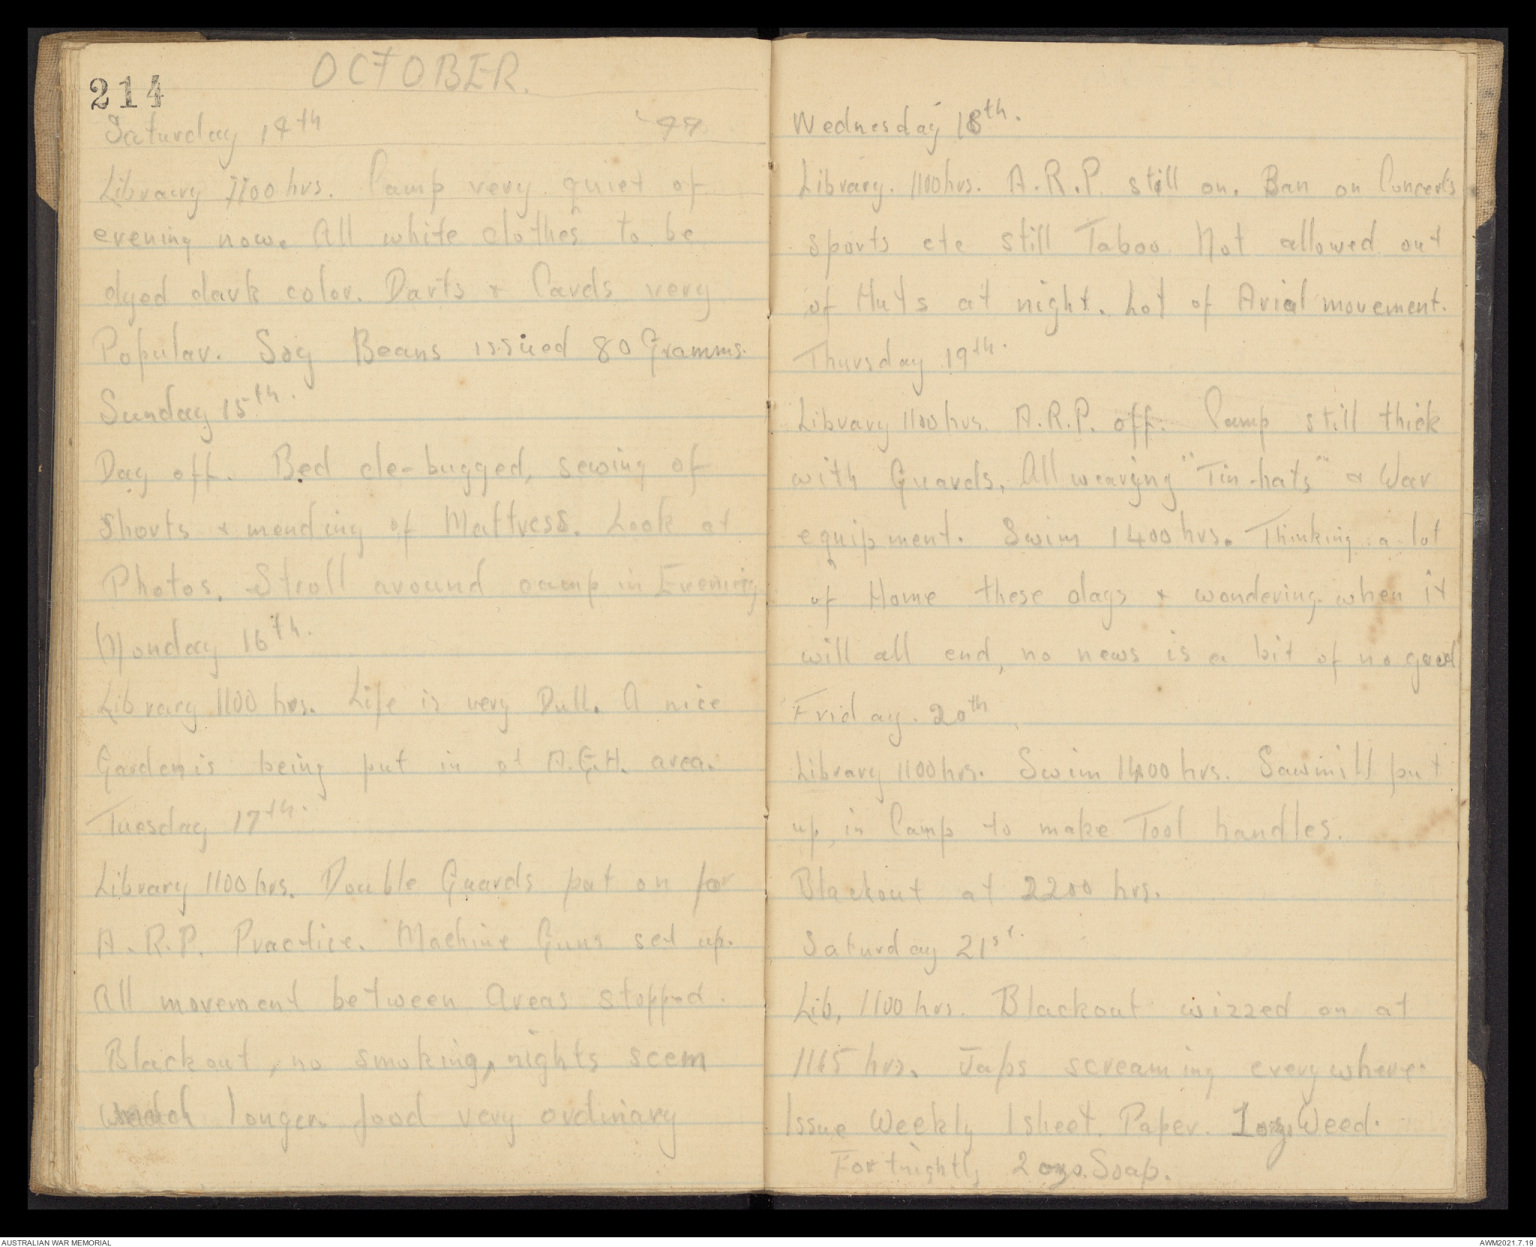 214
OCTOBER.
Saturday 14th '44
Library 1100 hrs. Camp very quiet of
evening now. All white clothes to be
dyed dark color. Darts & Cards very
Popular. Soy Beans issued 80 Gramms.
Sunday 15th.
Day off. Bed de-bugged, sewing of
Shorts & mending of Mattress. Look at
Photos. Stroll around camp in Evening
Monday 16th.
Library 1100 hrs. Life is very Dull. A nice
Garden is being put in at A.G.H. area.
Tuesday 17th.
Library 1100 hrs. Double Guards put on for
A.R.P. Practice. Machine Guns set up.
All movement between Areas stopped.
Blackout, no smoking, nights seem
longer. food very ordinary
Wednesday 18th.
Library. 1100 hrs. A.R.P. still on. Ban on Concerts
sports etc still Taboo. Not allowed out
of Huts at night. Lot of Arial movement.
Thursday 19th.
Library 1100 hrs. A.R.P. off. Camp still thick
with Guards. All wearing "Tin-hats" & War
equipment. Swim 1400 hrs. Thinking a lot
of Home these days & wondering when it
will all end, no news is a bit of no good
Friday. 20th
Library 1100 hrs. Swim 1400 hrs. Sawmill put
up in Camp to make Tool handles.
Blackout at 2200 hrs.
Saturday 21st.
Lib, 1100 hrs. Blackout wizzed on at
1165 hrs. Japs screaming everywhere.
Issue Weekly 1 sheet. Paper. 1 oz, Weed.
Fortnightly 2 ozs. Soap.
AUSTRALIAN WAR MEMORIAL
AWM2021.7.19